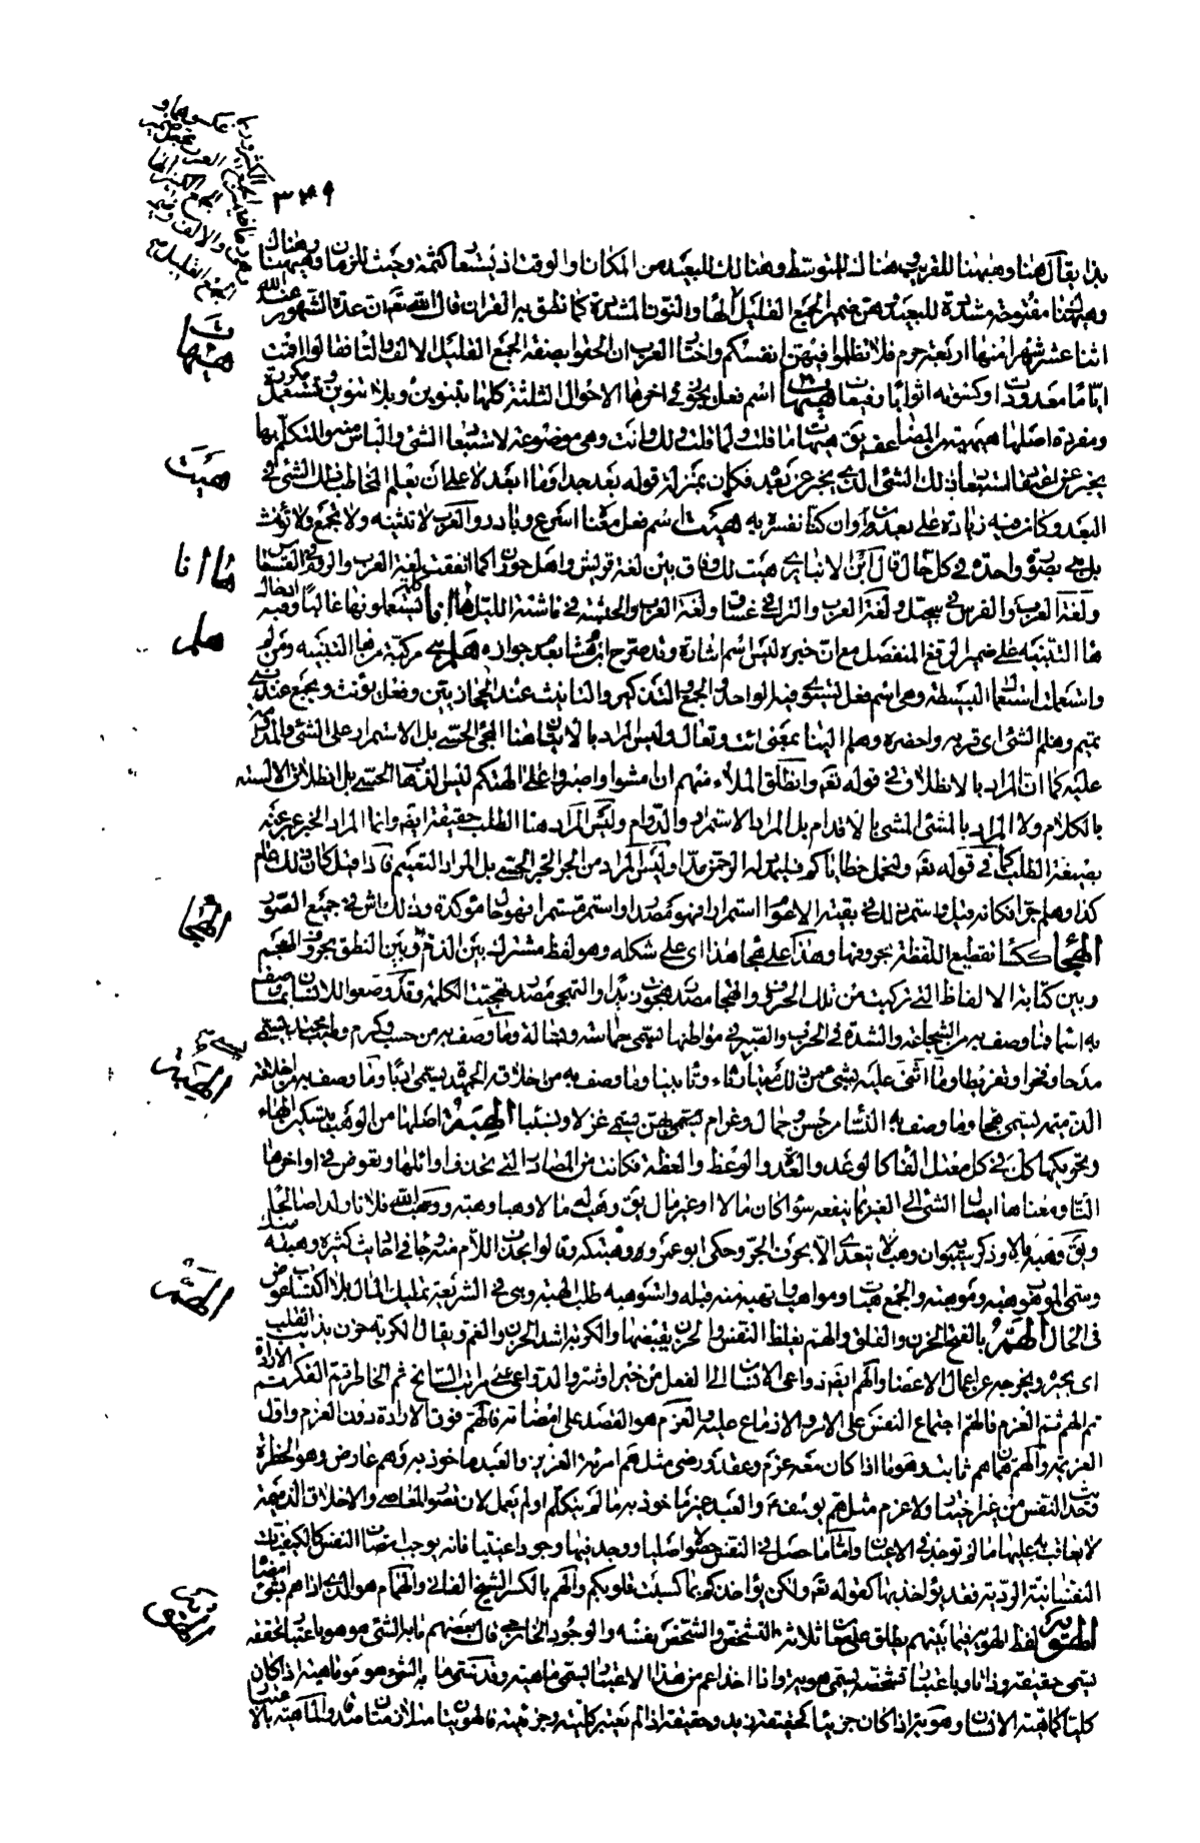 ٣٤٩
بذا يقال هنا وههنا للقريب وهناك للمتوسط وهنالك للبعيد من المكان والوقت اذ يستعار كثمة وحيث للزمان وههنا وهناك
وههنا مفتوحة مشددة للبعيد هن ضمير الجمع القليل الهاء والنون المشددة كما نطق به القران قال الله تعالى ان عدة الشهور عند الله
اثنا عشر شهرا منها اربعة حرم فلا تظلموا فيهن انفسكم واختار العرب ان الحقوا بصفة الجمع القليل الالف والتاء فقالوا اقمت
اياما معدودات وكسوته اثوابا رفيعات هيهات اسم فعل يجوز في اخرها الاحوال الثلثة كلها بتنوين وبلا تنوين وتستعمل مكررة
ومفردة اصلها هيهية من المضاعف يق هيهات ما قلت ولما قلت ولك وانت وهي موضوعة لاستبعاد الشئ والياس منه والمتكلم بها
يخبر عن اعتقاد استبعاد ذلك الشئ الذي يخبر عن بعده فكان بمنزلة قوله بعد جدا وما ابعده لا على ان يعلم المخاطب ذلك الشئ في
البعد وكان فيه زيادة على بعد وان كنا نفسره به هيت اسم فعل معناه اسرع وبادر والعرب لا تثنيه ولا تجمع ولا تؤنث
بل هي بصورة واحدة في كل حال قال ابن الانباري هيت لك وفاق بين لغة قريش واهل حوران كما اتفقت لغة العرب والروم في القسطاس
ولغة العرب والفرس في سجيل ولغة العرب والترك في غساق ولغة العرب والحبشة في ناشئة الليل ها انا كلمة يستعملونها غالبا وفيه ادخال
ها التنبيه على ضمير الرفع المنفصل مع ان خبره ليس اسم اشارة وقد صرح ابن هشام بعدم جوازه هلم هي مركبة من ها التنبيه ومن لم
واستعملت استعمال البسيطة وهي اسم فعل يستوي فيه الواحد والجمع والتذكير والتانيث عند الحجازيين وفعل يؤنث ويجمع عند بني
تميم وهلم الشئ اي قربه واحضره وهلم الينا بمعنى ائت وتعال وليس المراد بالاتيان هنا المجئ الحسي بل الاستمرار على الشئ والمداومة
عليه كما ان المراد بالانطلاق في قوله تع وانطلق الملاء منهم ان امشوا واصبروا على الهتكم ليس الذهاب الحسي بل انطلاق الالسنة
بالكلام ولا المراد بالمشي المشي بالاقدام بل المراد الاستمرار والدوام وليس المراد هنا الطلب حقيقة ايضا وانما المراد الخبر عبر عنه
بصيغة الطلب كما في قوله تع ولنحمل خطاياكم فليمدد له الرحمن مدا وليس المراد من الجر الجر الحسي بل المراد التعميم فاذا قيل كان ذلك عام
كذا وهلم جرا فكانه قيل واستمر ذلك في بقية الاعوام استمرارا فهو مصدر او استمر مستمرا فهو حال مؤكدة وذلك ماش في جميع الصور
الهجاء ككساء تقطيع اللفظة بحروفها وهذا على هجاء هذا اي على شكله وهو لفظ مشترك بين الذم وبين النطق بحروف المعجم
وبين كتابة الالفاظ التي تركبت من تلك الحروف والهجاء مصدر هجوت زيدا والتهجي مصدر تهجيت الكلمة وقد وضعوا للانسان بما وصف
به اسما فما وصف به من الشجاعة والشدة في الحرب والصبر في مواطنها يسمى حماسة وبسالة وما وصف به من حسب وكرم وطيب محتد يسمى
مدحا وفخرا وتقريظا وما اثنى عليه بشئ من ذلك ميتا رثاء وتابينا وما وصف به من اخلاقه الحميدة يسمى ادبا وما وصف به من اخلاقه
الذميمة يسمى هجاء وما وصف به النساء من حسن وجمال وغرام بهن يسمى غزلا ونسيبا الهبة اصلها من الوهب بتسكين الهاء
وتحريكها كذلك في كل معتل الفاء كالوعد والعدة والوعظ والعظة فكانت من المصادر التي تحذف اوائلها وتعوض في اواخرها
التاء ومعناها ايصال الشئ الى الغير بما ينفعه سواء كان مالا او غير مال يق وهب له مالا وهبا وهبة ووهب الله فلانا ولدا صالحا
ويق وهبه مالا وذكر سيبويه ان وهب لا يتعدى الا بحرف الجر وحكى ابو عمرو وهبتكه وقالوا بحذف اللام منه وجاء في احاديث كثيرة وهبته منك
وسمى الموهوب هبة وموهبة والجمع هبات ومواهب واتهبه منه قبله واستوهبه طلب الهبة وهي في الشريعة تمليك المال بلا اكتساب عوض
في الحال الهم بالفتح الحزن والقلق والهم يغلظ النفس والحزن يقبضها والكربة اشد الحزن والغم ويقال الكربة حزن يذيب القلب
اي يحيره ويخرجه عن اعمال الاعضاء والهم ايضا دواعي الانسان الى الفعل من خير او شر والدواعي على مراتب السانح ثم الخاطر ثم الفكر ثم الارادة
ثم الهم ثم العزم فالهم اجتماع النفس على الامر والازماع عليه والعزم هو القصد على امضائه فالهم فوق الارادة دون العزم واول
العزيمة والهم همان هم ثابت وهو ما اذا كان معه عزم وعقد ورضى مثل هم امرئة العزيز والعبد ماخوذ به وهم عارض وهو الخطرة
وحديث النفس من غير اختيار ولا عزم مثل هم يوسف ع والعبد غير ماخوذ به ما لم يتكلم او لم يعمل لان تصور المعاصي والاخلاق الذميمة
لا يعاقب به عليها ما لم توجد في الاعيان واما ما حصل في النفس حصولا اصليا ووجد فيها وجودا عينيا فانه يوجب اتصاف النفس كالكيفيات
النفسانية الردية فقد يؤاخذ بها كقوله تع ولكن يؤاخذكم بما كسبت قلوبكم والهم بالكسر الشيخ الفاني والهمام هو الذي اذا هم بشئ امضاه
الهوية لفظ الهوية فيما بينهم يطلق على معان ثلاثة التشخص والشخص نفسه والوجود الخارجي قال بعضهم ما به الشئ هو هو باعتبار تحققه
يسمى حقيقة وذاتا وباعتبار تشخصه يسمى هوية واذا اخذ اعم من هذا الاعتبار يسمى ماهية وقد يسمى ما به الشئ هو هو ماهية اذا كان
كليا كماهية الانسان وهوية اذا كان جزئيا كحقيقة زيد وحقيقة اذا لم يعتبر كليته وجزئيته فالهويتان متلازمتان صدقا والماهية بالاعتبار
هيهات
هيت
ها انا
هلم
الهجاء
الهبة
الهم
الهوية